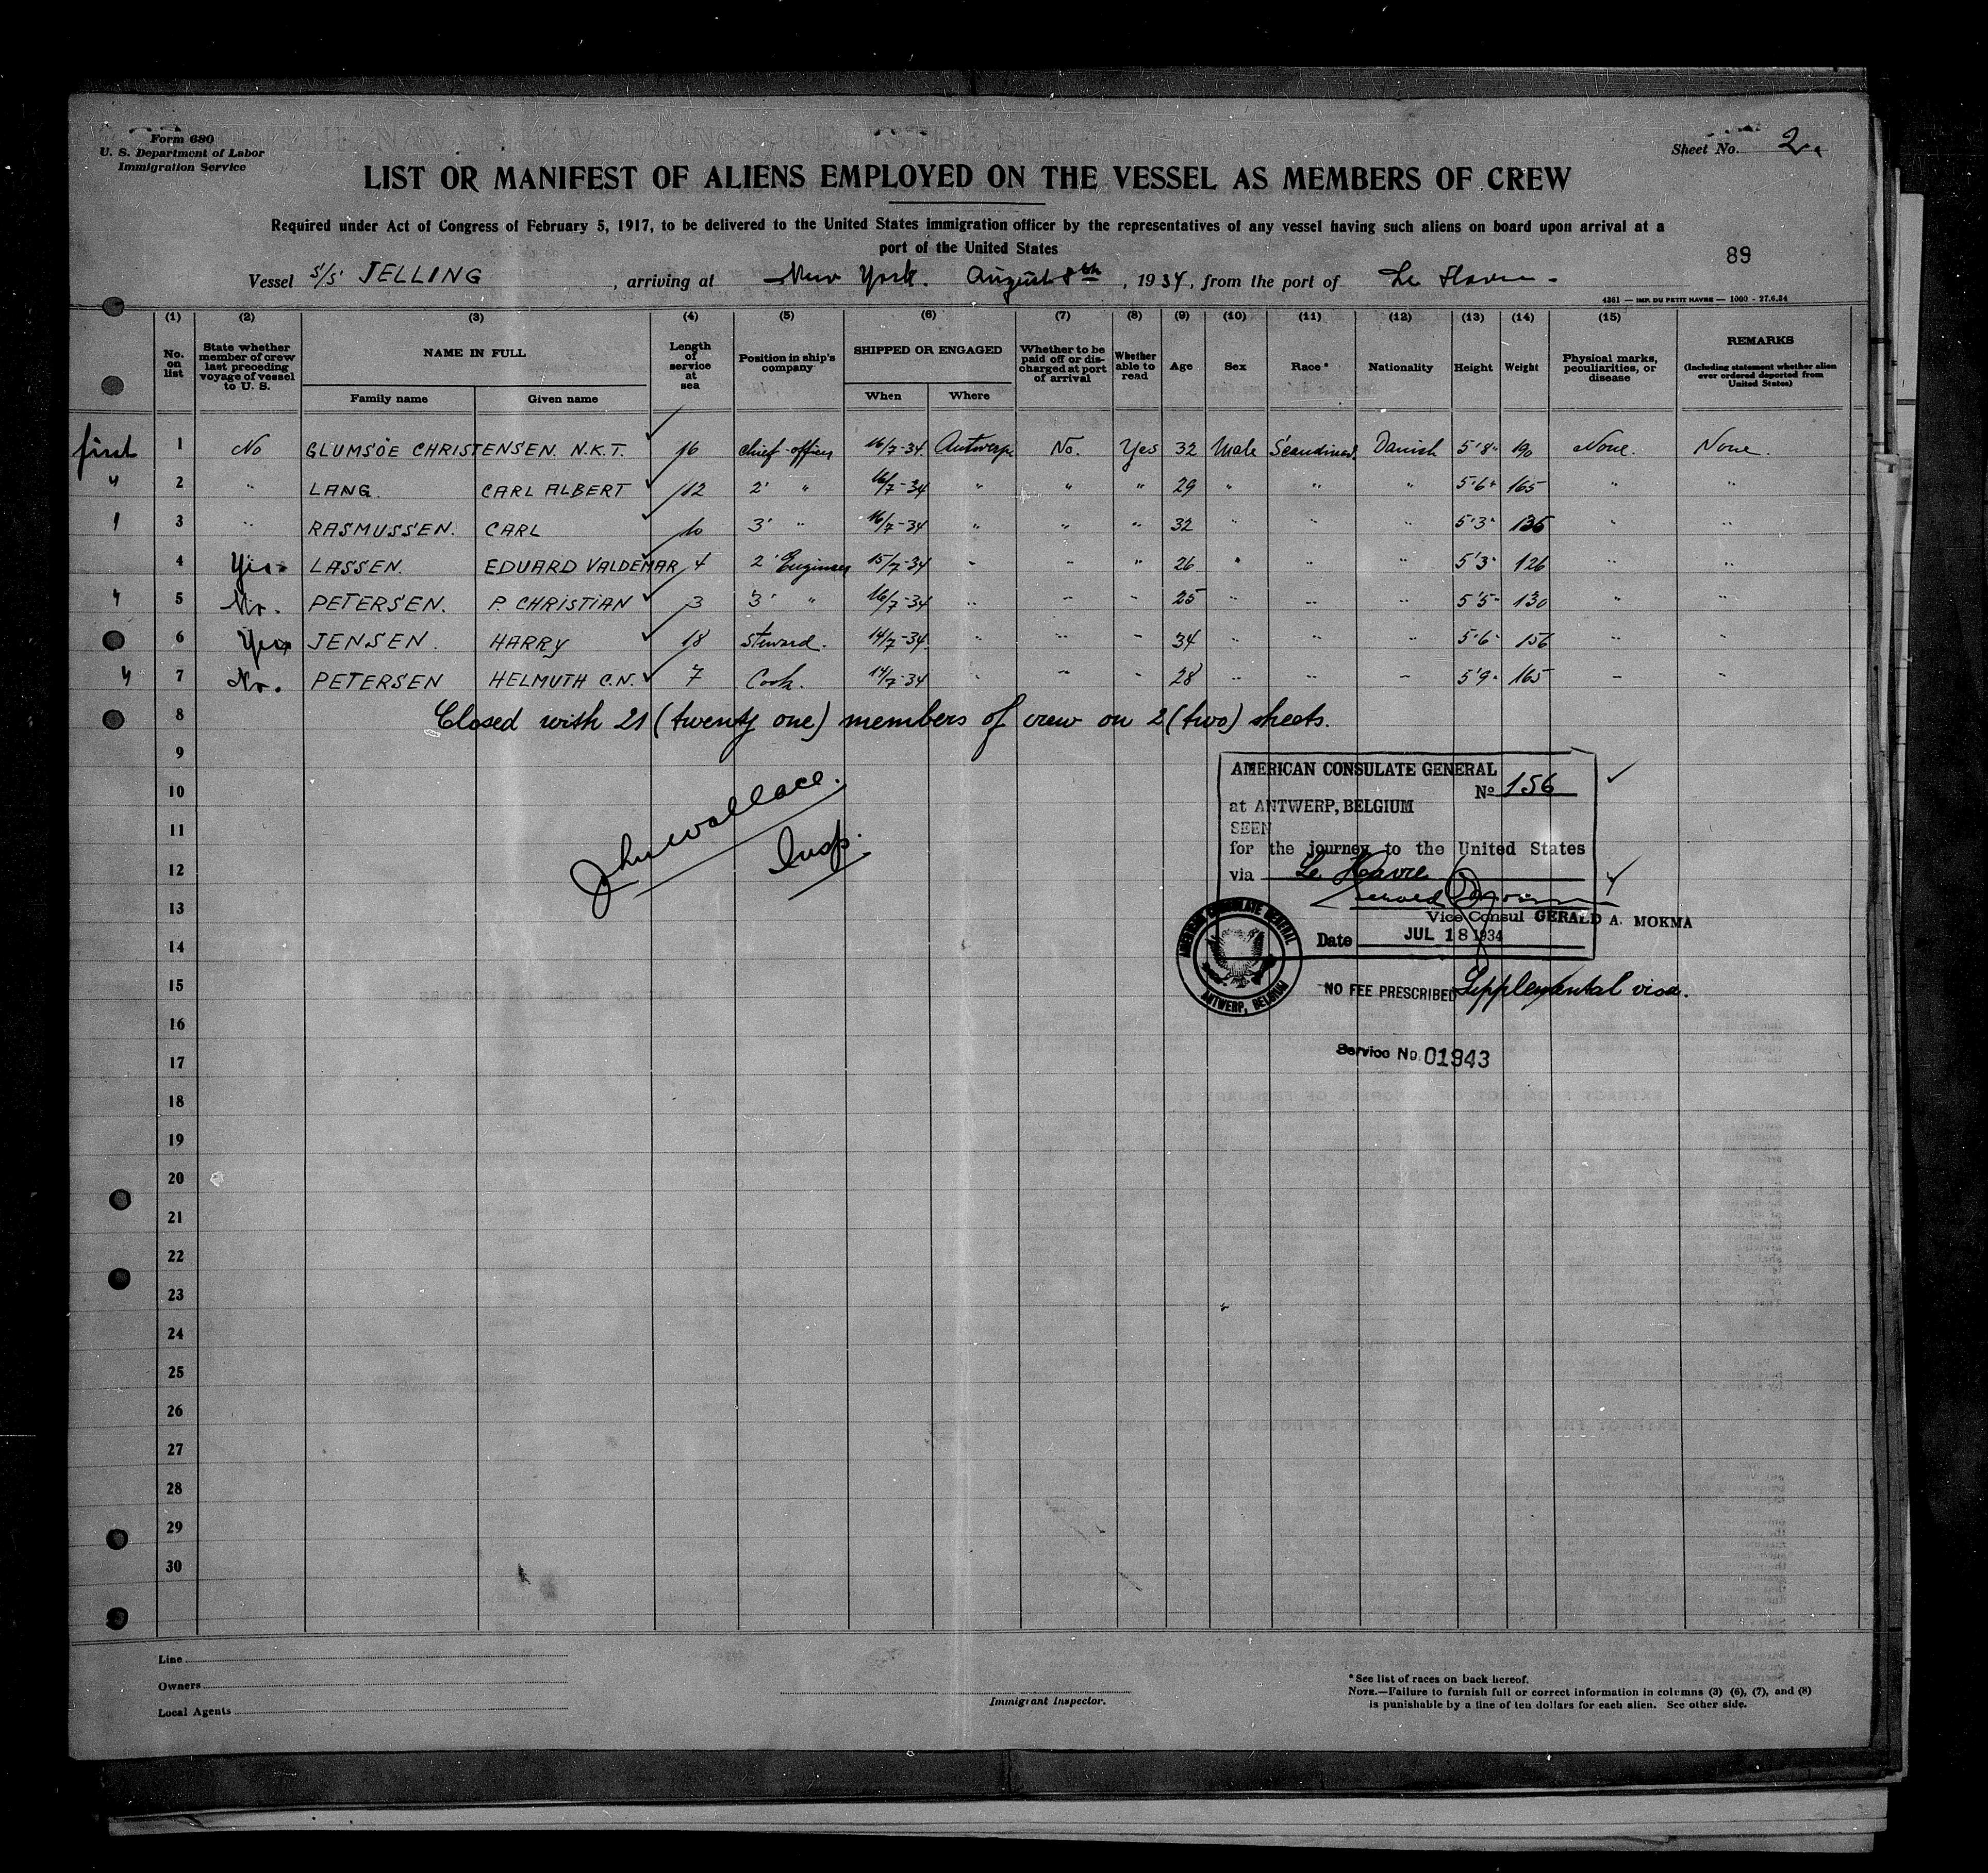 Form 680
U. S. Department of Labor
Immigration Service
Sheet No. 2.
LIST OR MANIFEST OF ALIENS EMPLOYED ON THE VESSEL AS MEMBERS OF CREW
Required under Act of Congress of February 5, 1917, to be delivered to the United States immigration officer by the representatives of any vessel having such aliens on board upon arrival at a
port of the United States
89
Vessel S/S JELLING, arriving at New York. August 8th, 1934, from the port of Le Havre.
4361 — IMP. DU PETIT HAVRE — 1000 - 27.6.34
(1) (2) (3) (4) (5) (6) (7) (8) (9) (10) (11) (12) (13) (14) (15)
No. on list
State whether member of crew last preceding voyage of vessel to U. S.
NAME IN FULL
Family name
Given name
Length of service at sea
Position in ship's company
SHIPPED OR ENGAGED
When
Where
Whether to be paid off or discharged at port of arrival
Whether able to read
Age
Sex
Race*
Nationality
Height
Weight
Physical marks, peculiarities, or disease
REMARKS
(Including statement whether alien ever ordered deported from United States)
first 1 No GLUMSÖE CHRISTENSEN. N.K.T. 16 chief-officer 16/7-34 Antwerpe No. Yes 32 Male Scandinav. Danish 5'8" 190 None. None.
" 2 " LANG. CARL ALBERT 12 2' " 16/7-34 " " " 29 " " " 5'6" 165 " "
" 3 " RASMUSSEN. CARL 10 3' " 16/7-34 " " " 32 " " " 5'3" 135 " "
4 Yes LASSEN. EDUARD VALDEMAR 4 2' Engineer 15/7-34 " " " 26 " " " 5'3" 126 " "
" 5 No. PETERSEN. P. CHRISTIAN 3 3' " 16/7-34 " " " 25 " " " 5'5" 130 " "
6 Yes JENSEN. HARRY 18 Steward. 14/7-34 " " " 34 " " " 5'6" 156 " "
" 7 No. PETERSEN HELMUTH C.N. 7 Cook. 14/7-34 " " " 28 " " " 5'9" 165 " "
8 Closed with 21 (twenty one) members of crew on 2 (two) sheets.
9
10
11
12
13
14
15
16
17
18
19
20
21
22
23
24
25
26
27
28
29
30
John Wallace.
Insp.
AMERICAN CONSULATE GENERAL
No 156
at ANTWERP, BELGIUM
SEEN
for the journey to the United States
via Le Havre
Vice Consul GERALD A. MOKMA
Date JUL 18 1934
AMERICAN CONSULATE GENERAL
ANTWERP, BELGIUM
NO FEE PRESCRIBED Supplemental visa.
Service No. 01943
Line
Owners
Local Agents
Immigrant Inspector.
*See list of races on back hereof.
NOTE.—Failure to furnish full or correct information in columns (3) (6), (7), and (8)
is punishable by a fine of ten dollars for each alien. See other side.